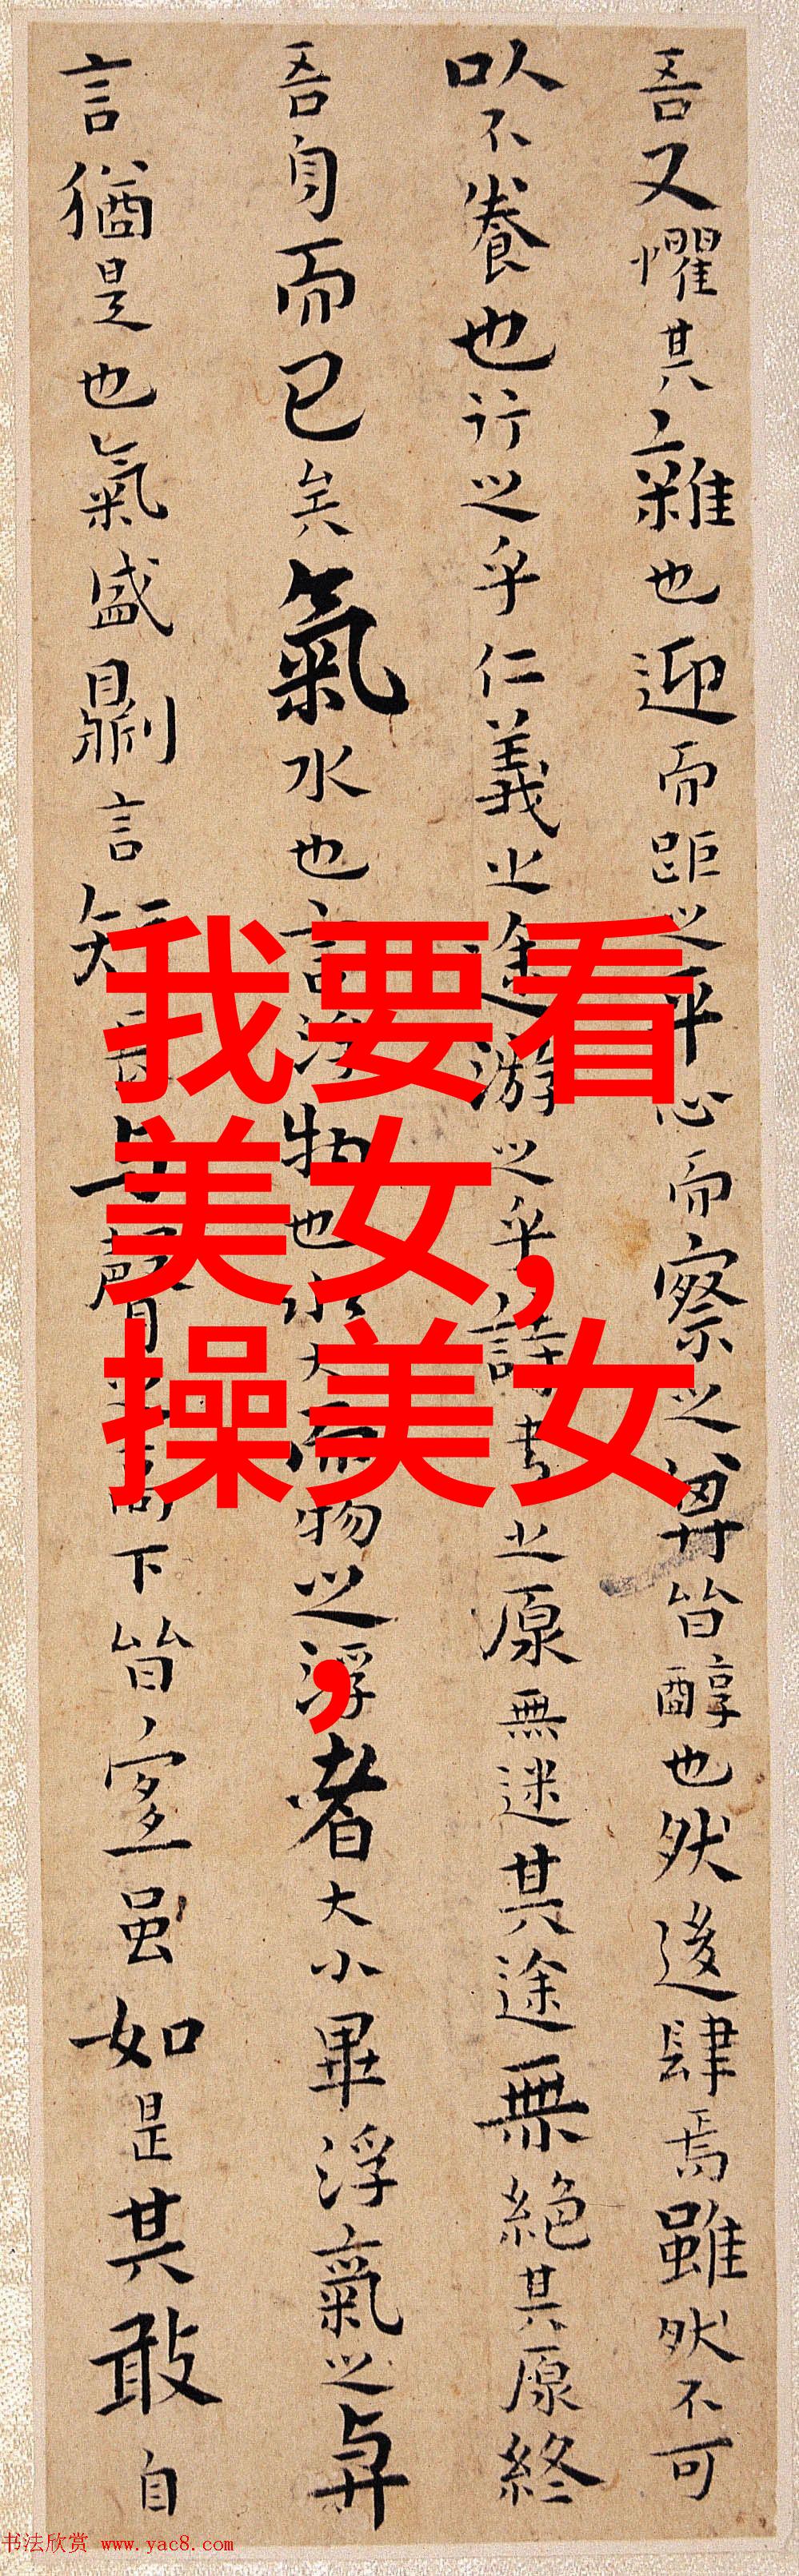 吾又懼其雜也迎而距之平心而察之其皆醇也然後肆焉雖然不可
以不養也行之乎仁義之途游之乎詩書之原無迷其途無絕其原終
吾身而已矣氣水也言浮物也水大而物之浮者大小畢浮氣之與
言猶是也氣盛則言短長與聲之高下皆宜虽如是其敢自
我要看
美女,
操美女
,
书法欣赏 www.yac8.com